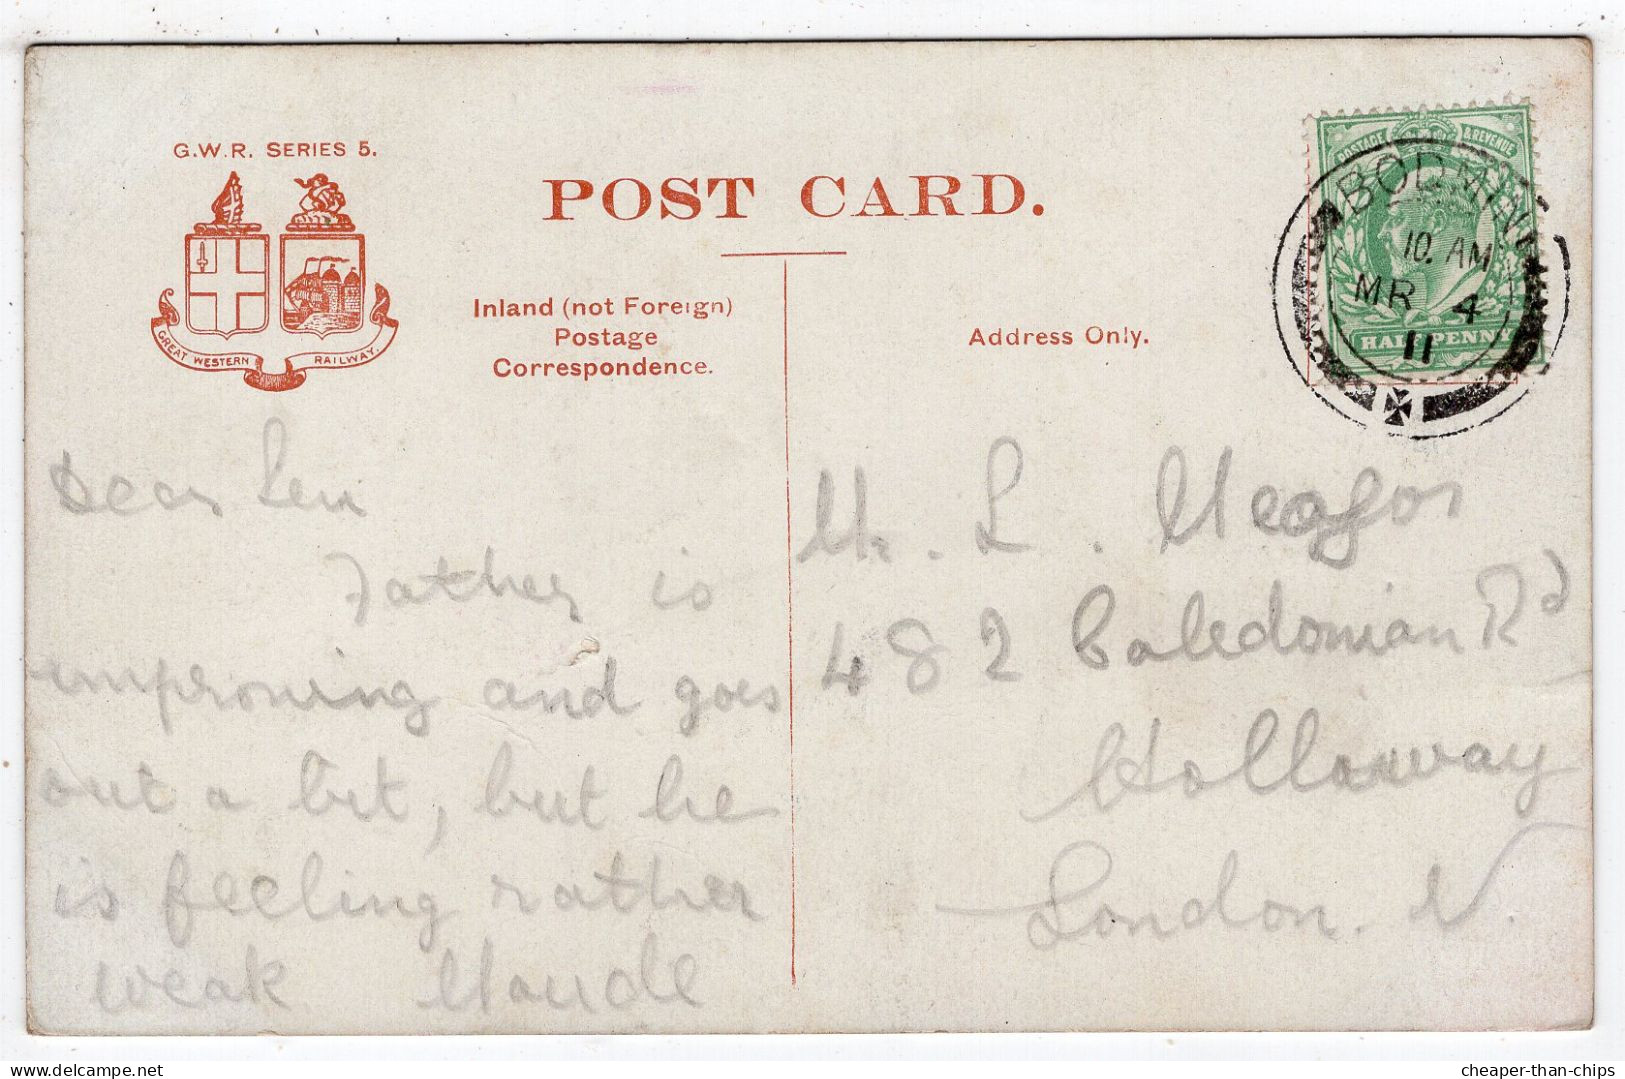 G.W.R. SERIES 5.
GREAT WESTERN RAILWAY.
POST CARD.
Inland (not Foreign)
Postage
Correspondence.
Address Only.
POSTAGE & REVENUE
HALFPENNY
BODMIN
10. AM
MR 4
11
Dear Len
Father is
improving and goes
out a bit, but he
is feeling rather
weak Maude
Mr. L.
482 Caledonian Rd
Holloway
London. N.
cheaper-than-chips